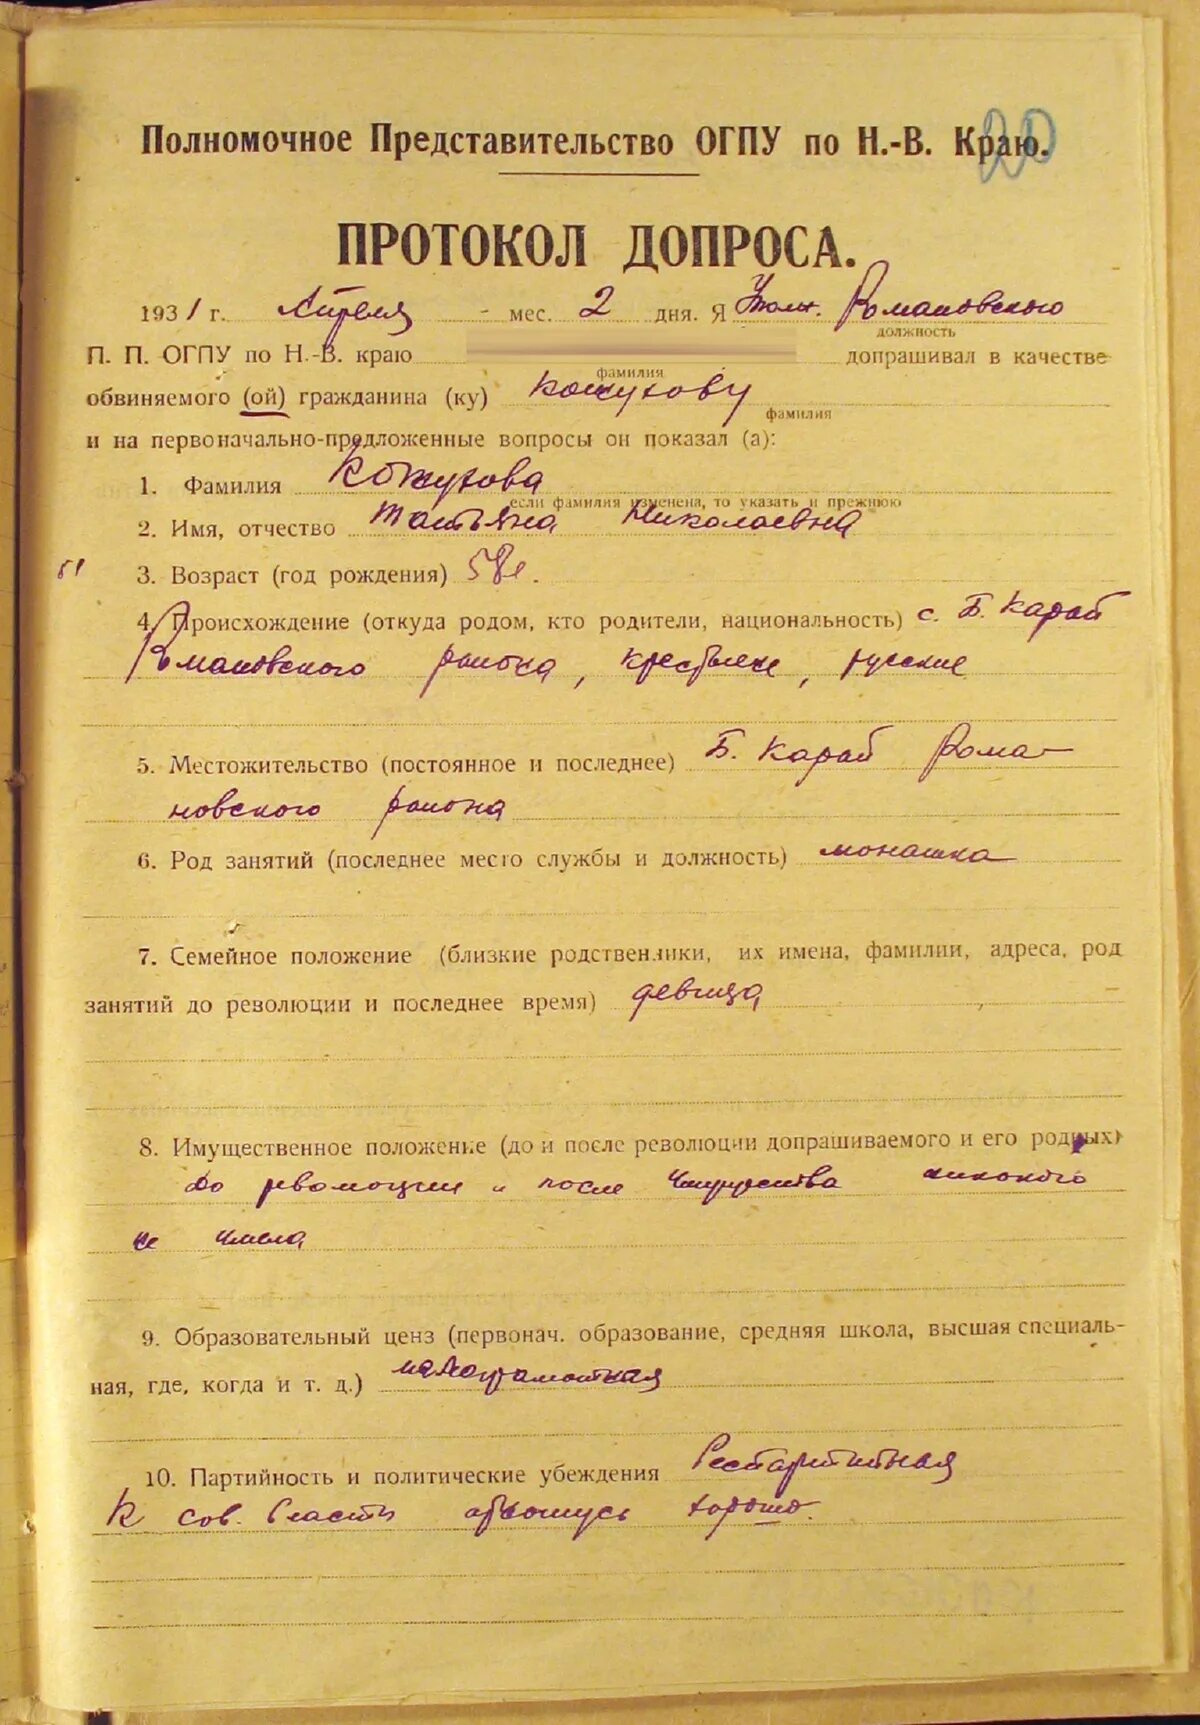 Полномочное Представительство ОГПУ по Н.-В. Краю.
ПРОТОКОЛ ДОПРОСА.
1931 г. Апреля мес. 2 дня. Я Уполн. Романовского
должность
П. П. ОГПУ по Н.-В. краю допрашивал в качестве
фамилия
обвиняемого (ой) гражданина (ку) Кожухову
фамилия
и на первоначально-предложенные вопросы он показал (а):
1. Фамилия Кожухова
если фамилия изменена, то указать и прежнюю
2. Имя, отчество Татьяна Николаевна
3. Возраст (год рождения) 58 л.
4. Происхождение (откуда родом, кто родители, национальность) с. Б. Карай
Романовского района, крестьяне, русские
5. Местожительство (постоянное и последнее) Б. Карай Рома-
новского района
6. Род занятий (последнее место службы и должность) монашка
7. Семейное положение (близкие родственники, их имена, фамилии, адреса, род
занятий до революции и последнее время) девица
8. Имущественное положение (до и после революции допрашиваемого и его родных)
До революции и после имущества никакого
не имела
9. Образовательный ценз (первонач. образование, средняя школа, высшая специаль-
ная, где, когда и т. д.) малограмотная
10. Партийность и политические убеждения Беспартийная
К сов. власти отношусь хорошо.